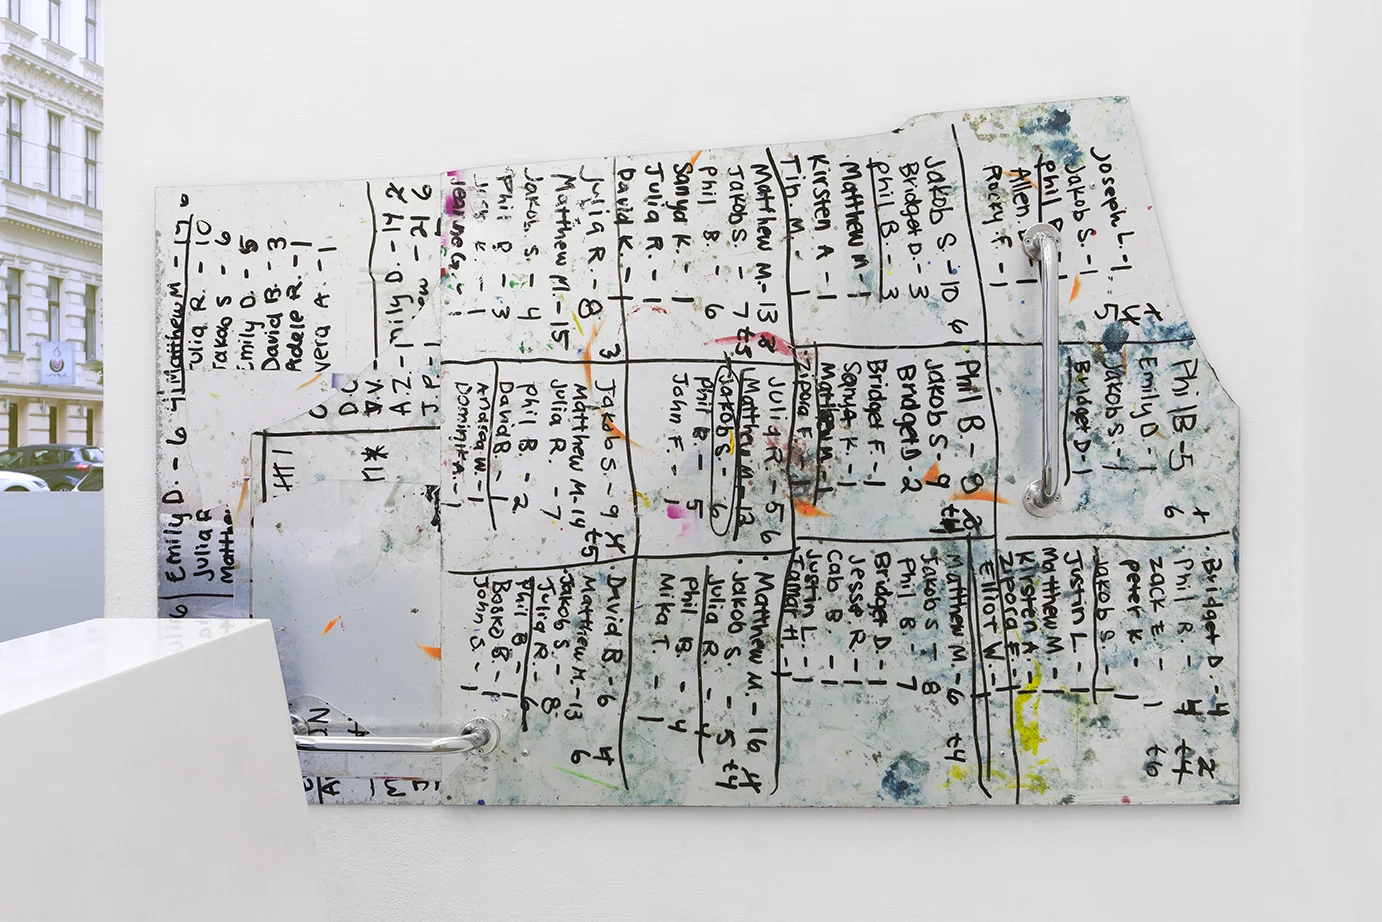 Joseph L-1
Jakob S.-1
Phil B
Allen
Rocky F -1
Phil B -5
Emily D -1
Jakob S -1
Bridget D-1
Bridget D. -4
Phil R - 4 t4
Zack E - 1 t6
Peter K - 1
Jakob S - 1
Justin L - 1
Matthew M. - 1
Kirsten A. - 1
Zipora E - 1
Elliot W. - 1
Jakob S -10
Bridget D. -3
Phil B. - 3
Matthew M - 1
Kirsten A - 1
Tin M. - 1
Phil B - 8
Jakob S - 9
Bridget D -2
Bridget F -1
Sonya K. -1
Matthew M -1
Zipora F. 1
Matthew M. -6 t4
Jakob S - 8
Phil B. - 7
Bridget D - 1
Jesse R - 1
Cab B - 1
Justin L. - 1
Tamar H. - 1
Matthew M. -13
Jakob S - 7 t5
Phil B. - 6
Sonya K. - 1
Julia R. - 1
David K. - 1
Julia R - 5 6
Matthew M. -13
Jakob S - 6
Phil B - 5
John F. - 1
Matthew M - 16 4
Jakob S - 5 t4
Julia R. - 4
Phil B - 4
Mika T. - 1
Julia R. - 8 3
Matthew M. -15
Jakob. S. - 4
Phil B - 3
Jess K - 1
Jeanine G. - 1
Jakob S. - 9 4
Matthew M-14 t5
Julia R. - 7
Phil B - 2
David B - 1
Andrea W. -1
Dominik A. - 1
David B - 6 4
Matthew M -13 6
Jakob S - 8
Julia R. - 8.
Phil B - 6
Bosko B. - 1
John S - 1
6 - 21
2
nily D. -14
J. P - 1
A. Z - 1
D.V.
DC
Vera A. -1
Adele R. -1
David B -3
Emily D. - 5
Jakob S - 6
Julia R. - 10
Matthew M - 17
Emily D. - 6
Julia R
Matthew